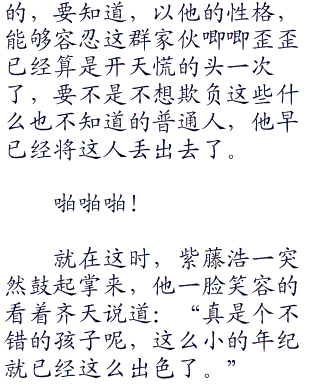 的，要知道，以他的性格，
能够容忍这群家伙唧唧歪歪
已经算是开天慌的头一次
了，要不是不想欺负这些什
么也不知道的普通人，他早
已经将这人丢出去了。
啪啪啪！
就在这时，紫藤浩一突
然鼓起掌来，他一脸笑容的
看着齐天说道：“真是个不
错的孩子呢，这么小的年纪
就已经这么出色了。”